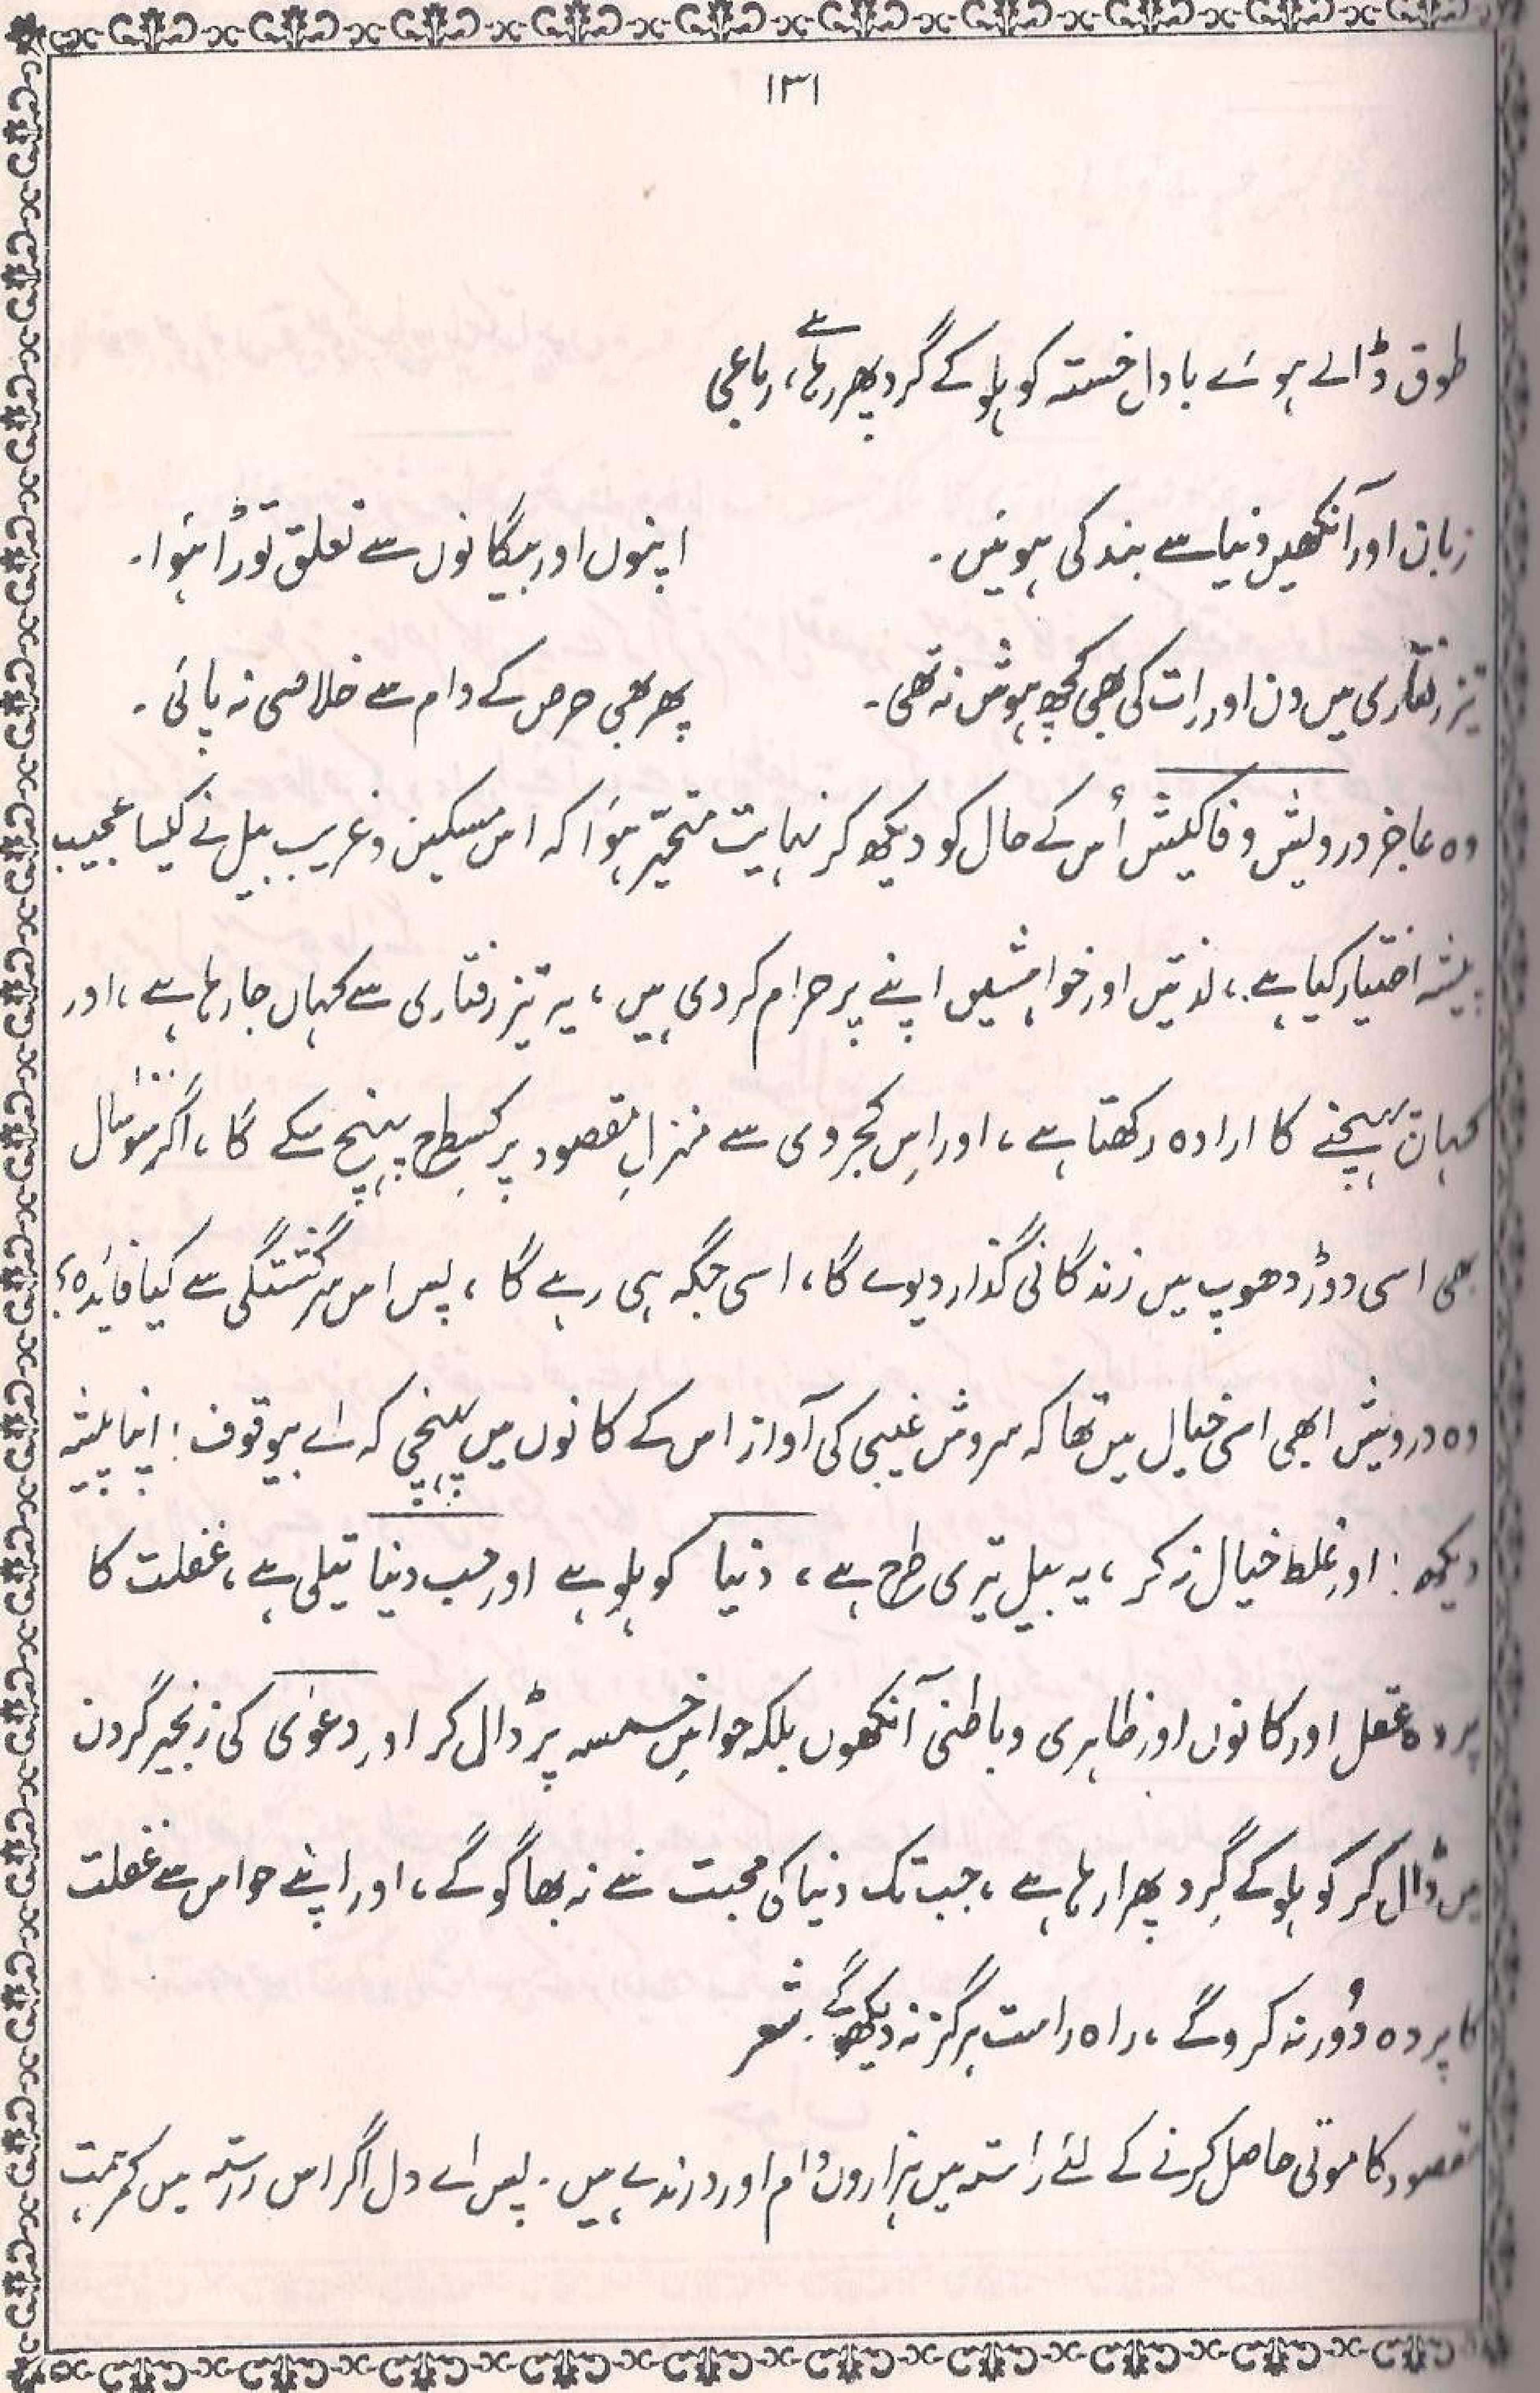 ۱۳۱
طوق ڈالے ہوئے بادل خستہ کوہلو کے گرد پھر رہا ہے، رباعی
زبان اور آنکھیں دنیا سے بند کی ہوئیں۔ اپنوں اور بیگانوں سے تعلق توڑا ہوا۔
تیز رفتاری میں دن اور رات کی بھی کچھ ہوش نہ تھی۔ پھر بھی حرص کے دام سے خلاصی نہ پائی۔
وہ عاجز درویش وفاکیش اُس کے حال کو دیکھ کر نہایت متحیّر ہوَا کہ اس مسکین و غریب بیل نے کیسا عجیب
پیشہ اختیار کیا ہے، لذتیں اور خواہشیں اپنے پر حرام کر دی ہیں، یہ تیز رفتاری سے کہاں جا رہا ہے، اور
کہاں پہنچنے کا ارادہ رکھتا ہے، اور اس کجروی سے منزلِ مقصود پر کسطرح پہنچ سکے گا، اگر سو ۱۰۰ سال
بھی اسی دوڑ دھوپ میں زندگانی گذار دیوے گا، اسی جگہ ہی رہے گا، پس اس سرگشتگی سے کیا فایٔدہ؟
وہ درویش ابھی اسی خیال میں تھا کہ سروش غیبی کی آواز اس کے کانوں میں پہنچی کہ اے بیوقوف! اپنا پیشہ
دیکھ! اور غلط خیال نہ کر، یہ بیل تیری طرح ہے، دنیا کوہلو ہے اور حب دنیا تیلی ہے، غفلت کا
پردہ عقل اور کانوں اور ظاہری و باطنی آنکھوں بلکہ حواسِ خمسہ پر ڈال کر اور دعویٰ کی زنجیر گردن
میں ڈال کر کوہلو کے گِرد پھرا رہا ہے، جب تک دنیا کی محبت سے نہ بھاگو گے، اور اپنے حواس سے غفلت
کا پردہ دُور نہ کرو گے، راہ راست ہرگز نہ دیکھو گے۔ شعر
مقصود کا موتی حاصل کرنے کے لئے راستہ میں ہزاروں دام اور درندے ہیں۔ پس اے دل اگر اس رستہ میں کمر ہمت